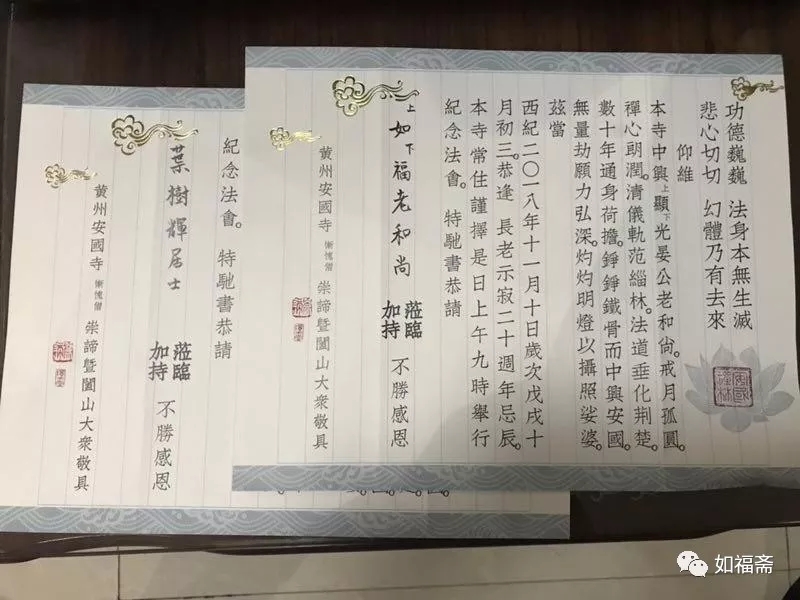 功德巍巍 法身本無生滅
悲心切切 幻體乃有去來
仰維
本寺中興上顯下光晏公老和尚。戒月孤圓。
禪心朗潤。清儀軌范緇林。法道垂化荆楚。
數十年通身荷擔。錚錚鐵骨而中興安國。
無量劫願力弘深。灼灼明燈以攝照娑婆。
茲當
西紀二〇一八年十一月十日歲次戊戌十
月初三。恭逢 長老示寂二十週年忌辰。
本寺常住謹擇是日上午九時舉行
紀念法會。特馳書恭請
上如下福老和尚 蒞臨加持 不勝感恩
黄州安國寺 慚愧僧 崇諦暨闔山大衆敬具
紀念法會。特馳書恭請
葉樹輝居士 蒞臨加持 不勝感恩
黄州安國寺 慚愧僧 崇諦暨闔山大衆敬具
如福斋